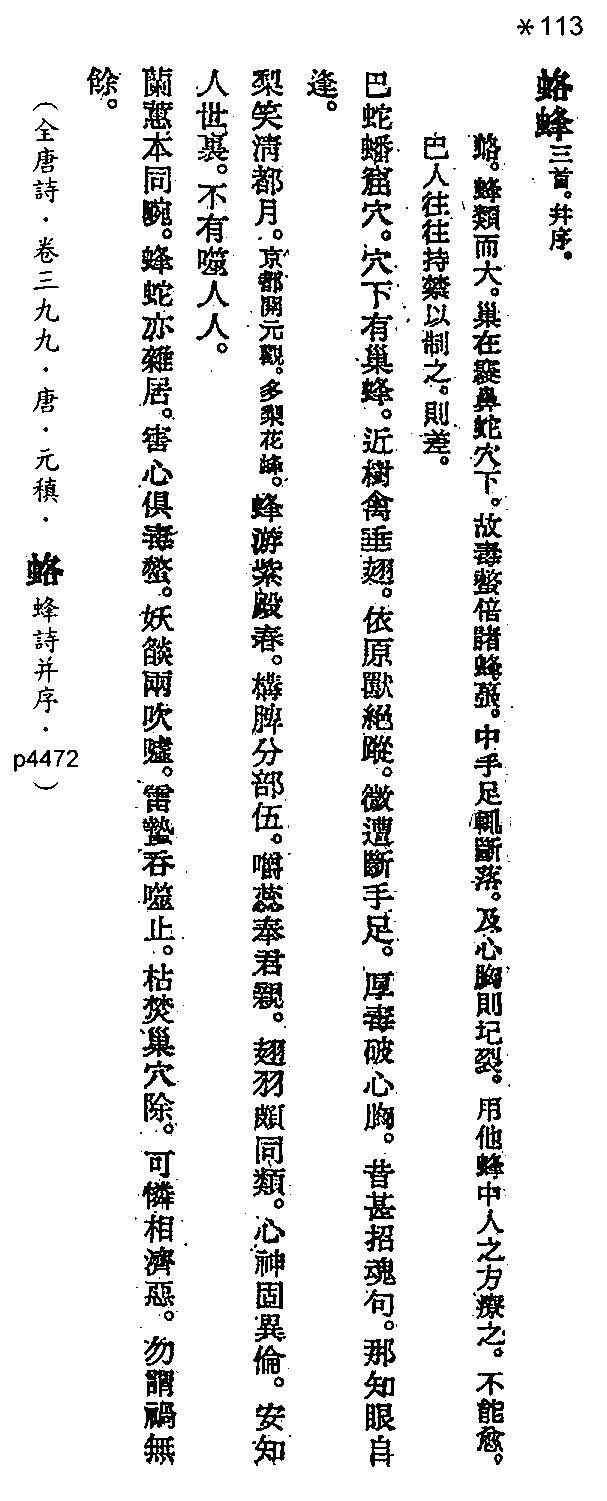 ＊113
蛒蜂三首。幷序。
蛒。蜂類而大。巢在褰鼻蛇穴下。故毒螫倍諸蜂蠆。中手足輒斷落。及心胸則圮裂。用他蜂中人之方療之。不能愈。
巴人往往持禁以制之。則差。
巴蛇蟠窟穴。穴下有巢蜂。近樹禽垂翅。依原獸絕蹤。微遭斷手足。厚毒破心胸。昔甚招魂句。那知眼自
逢。
梨笑清都月。京都開元觀。多梨花蜂。蜂游紫殿春。構脾分部伍。嚼蕊奉君親。翅羽頗同類。心神固異倫。安知
人世裏。不有噬人人。
蘭蕙本同畹。蜂蛇亦雜居。害心俱毒螫。妖燄兩吹噓。雷蟄吞噬止。枯焚巢穴除。可憐相濟惡。勿謂禍無
餘。
（全唐詩．卷三九九．唐．元稹．蛒蜂詩并序．p4472）